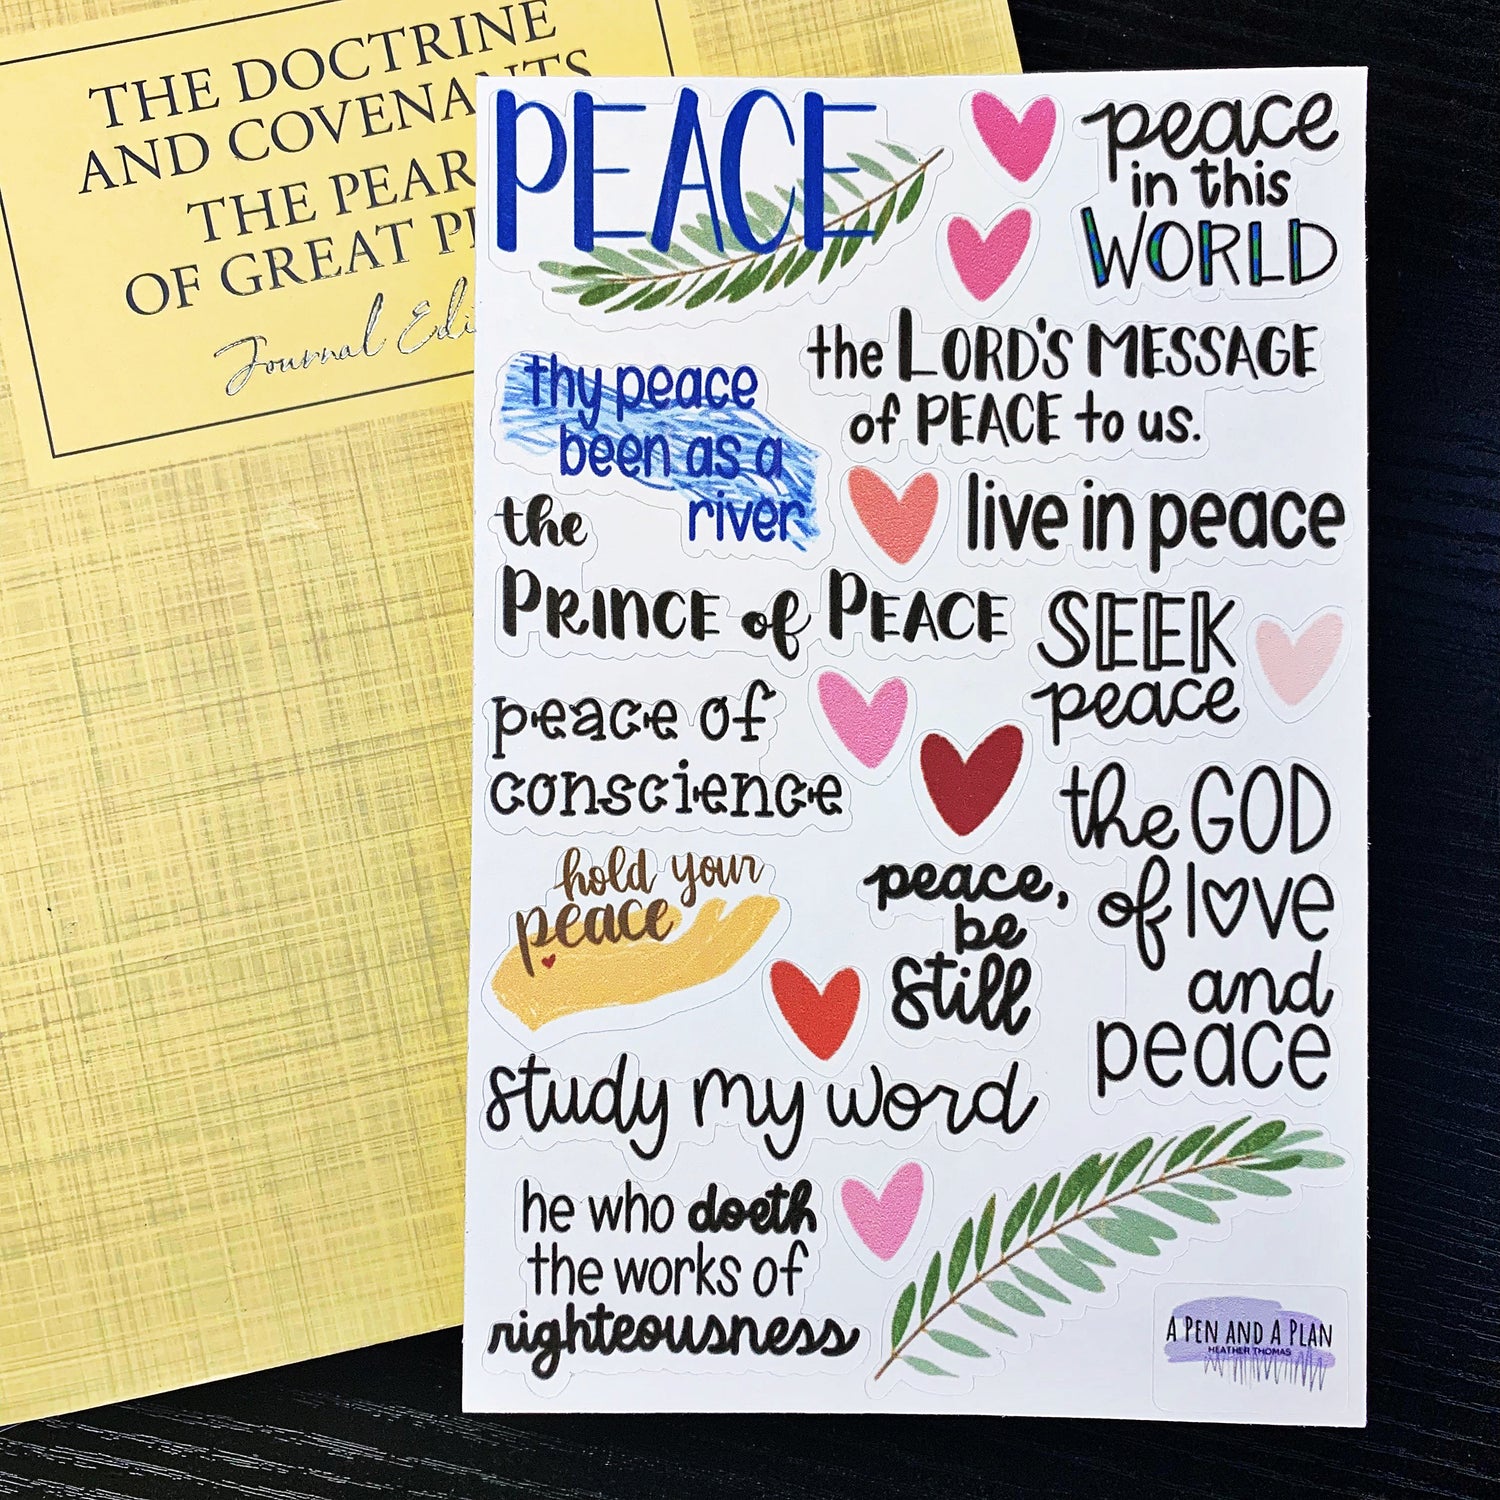 THE DOCTRINE
AND COVENANTS
THE
OF GREAT
Journal
PEACE
peace
in this
WORLD
the LORD'S MESSAGE
of PEACE to us.
thy peace
been as a
river
live in peace
the
PRINCE of PEACE
SEEK
peace
peace of
conscience
the GOD
of love
and
peace
hold your
peace
peace,
be
still
study my word
he who doeth
the works of
righteousness
A PEN AND A PLAN
HEATHER THOMAS